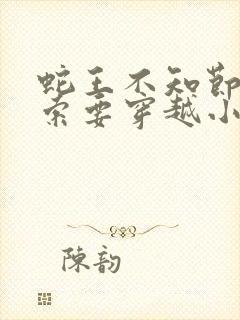 蛇王不知节
索要穿越小
陳韵